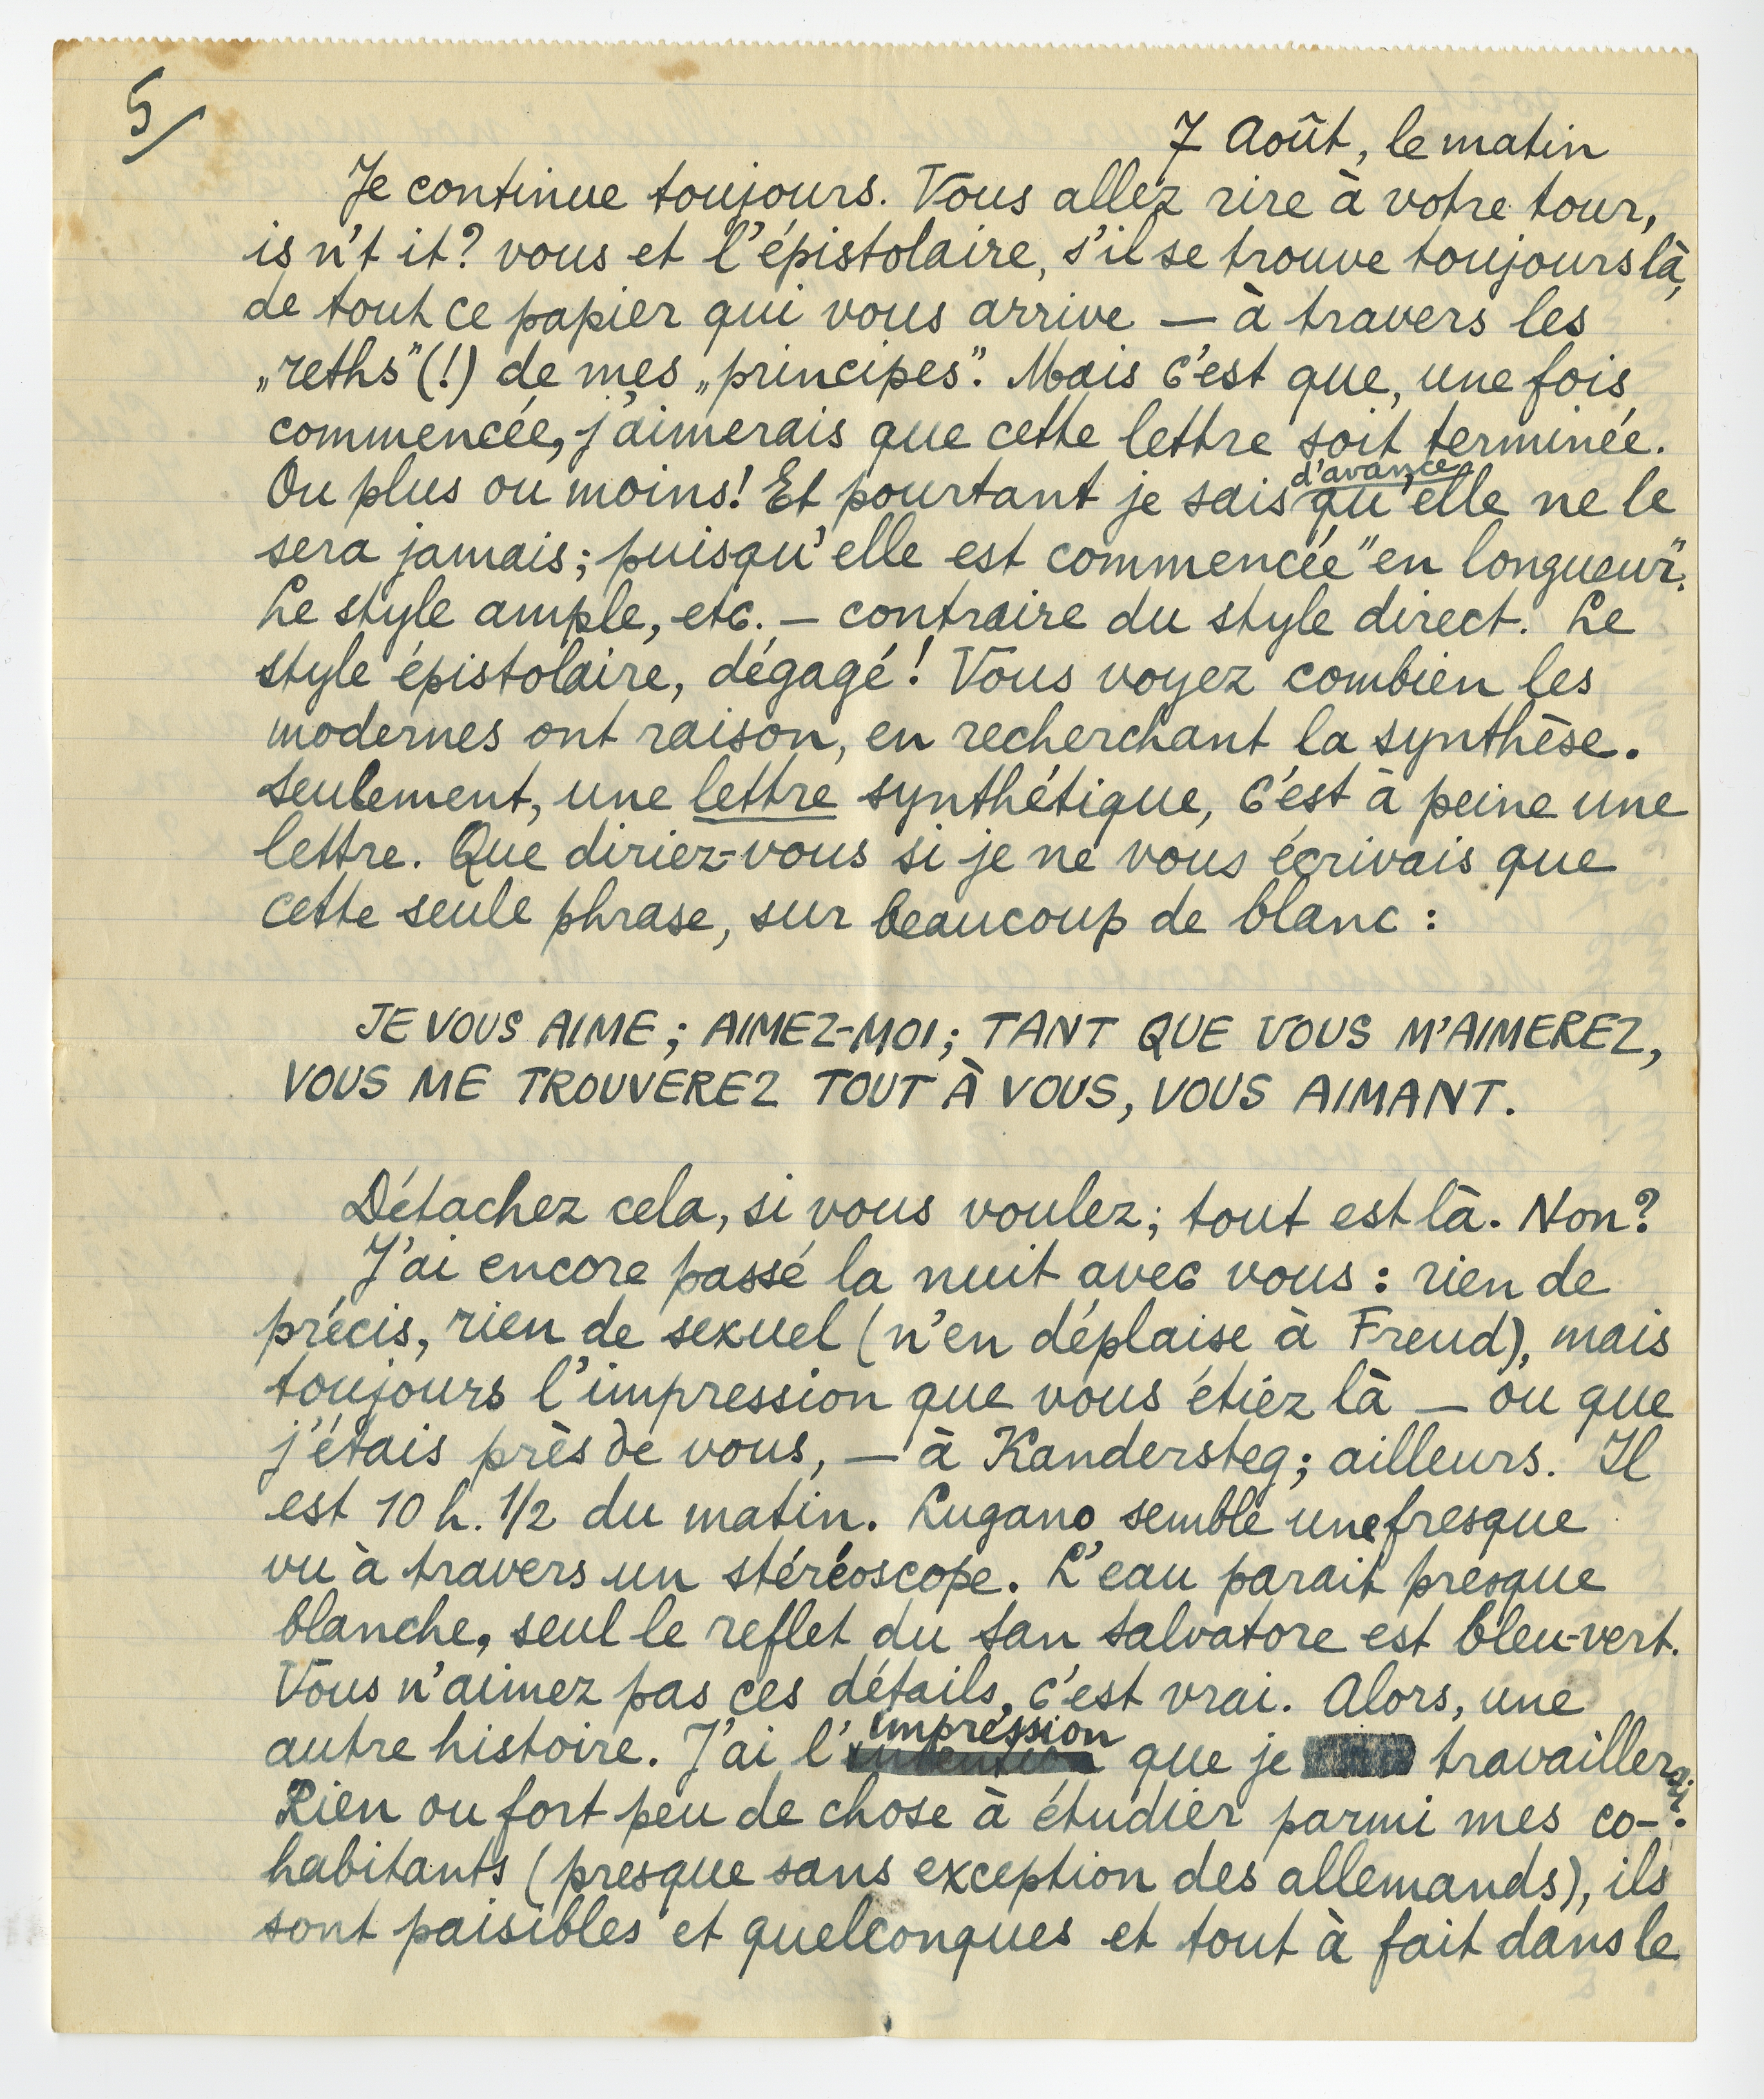 5/
7 Août, le matin
Je continue toujours. Vous allez rire à votre tour,
isn't it? vous et l'épistolaire, s'il se trouve toujours là,
de tout ce papier qui vous arrive — à travers les
„reths" (!) de mes „principes". Mais c'est que, une fois
commencée, j'aimerais que cette lettre soit terminée.
Ou plus ou moins! Et pourtant je sais d'avance qu'elle ne le
sera jamais; puisqu'elle est commencée "en longueur".
Le style ample, etc. — contraire du style direct. Le
style épistolaire, dégagé! Vous voyez combien les
modernes ont raison, en recherchant la synthèse.
Seulement, une lettre synthétique, c'est à peine une
lettre. Que diriez-vous si je ne vous écrivais que
cette seule phrase, sur beaucoup de blanc :
JE VOUS AIME ; AIMEZ-MOI ; TANT QUE VOUS M'AIMEREZ,
VOUS ME TROUVEREZ TOUT À VOUS, VOUS AIMANT.
Détachez cela, si vous voulez; tout est là. Non?
J'ai encore passé la nuit avec vous : rien de
précis, rien de sexuel (n'en déplaise à Freud), mais
toujours l'impression que vous étiez là — ou que
j'étais près de vous, — à Kandersteg; ailleurs. Il
est 10 h. 1/2 du matin. Lugano semble une fresque
vu à travers un stéréoscope. L'eau parait presque
blanche, seul le reflet du San Salvatore est bleu-vert.
Vous n'aimez pas ces détails, c'est vrai. Alors, une
autre histoire. J'ai l'impression que je travaillerai.
Rien ou fort peu de chose à étudier parmi mes co-
habitants (presque sans exception des allemands), ils
sont paisibles et quelconques et tout à fait dans le